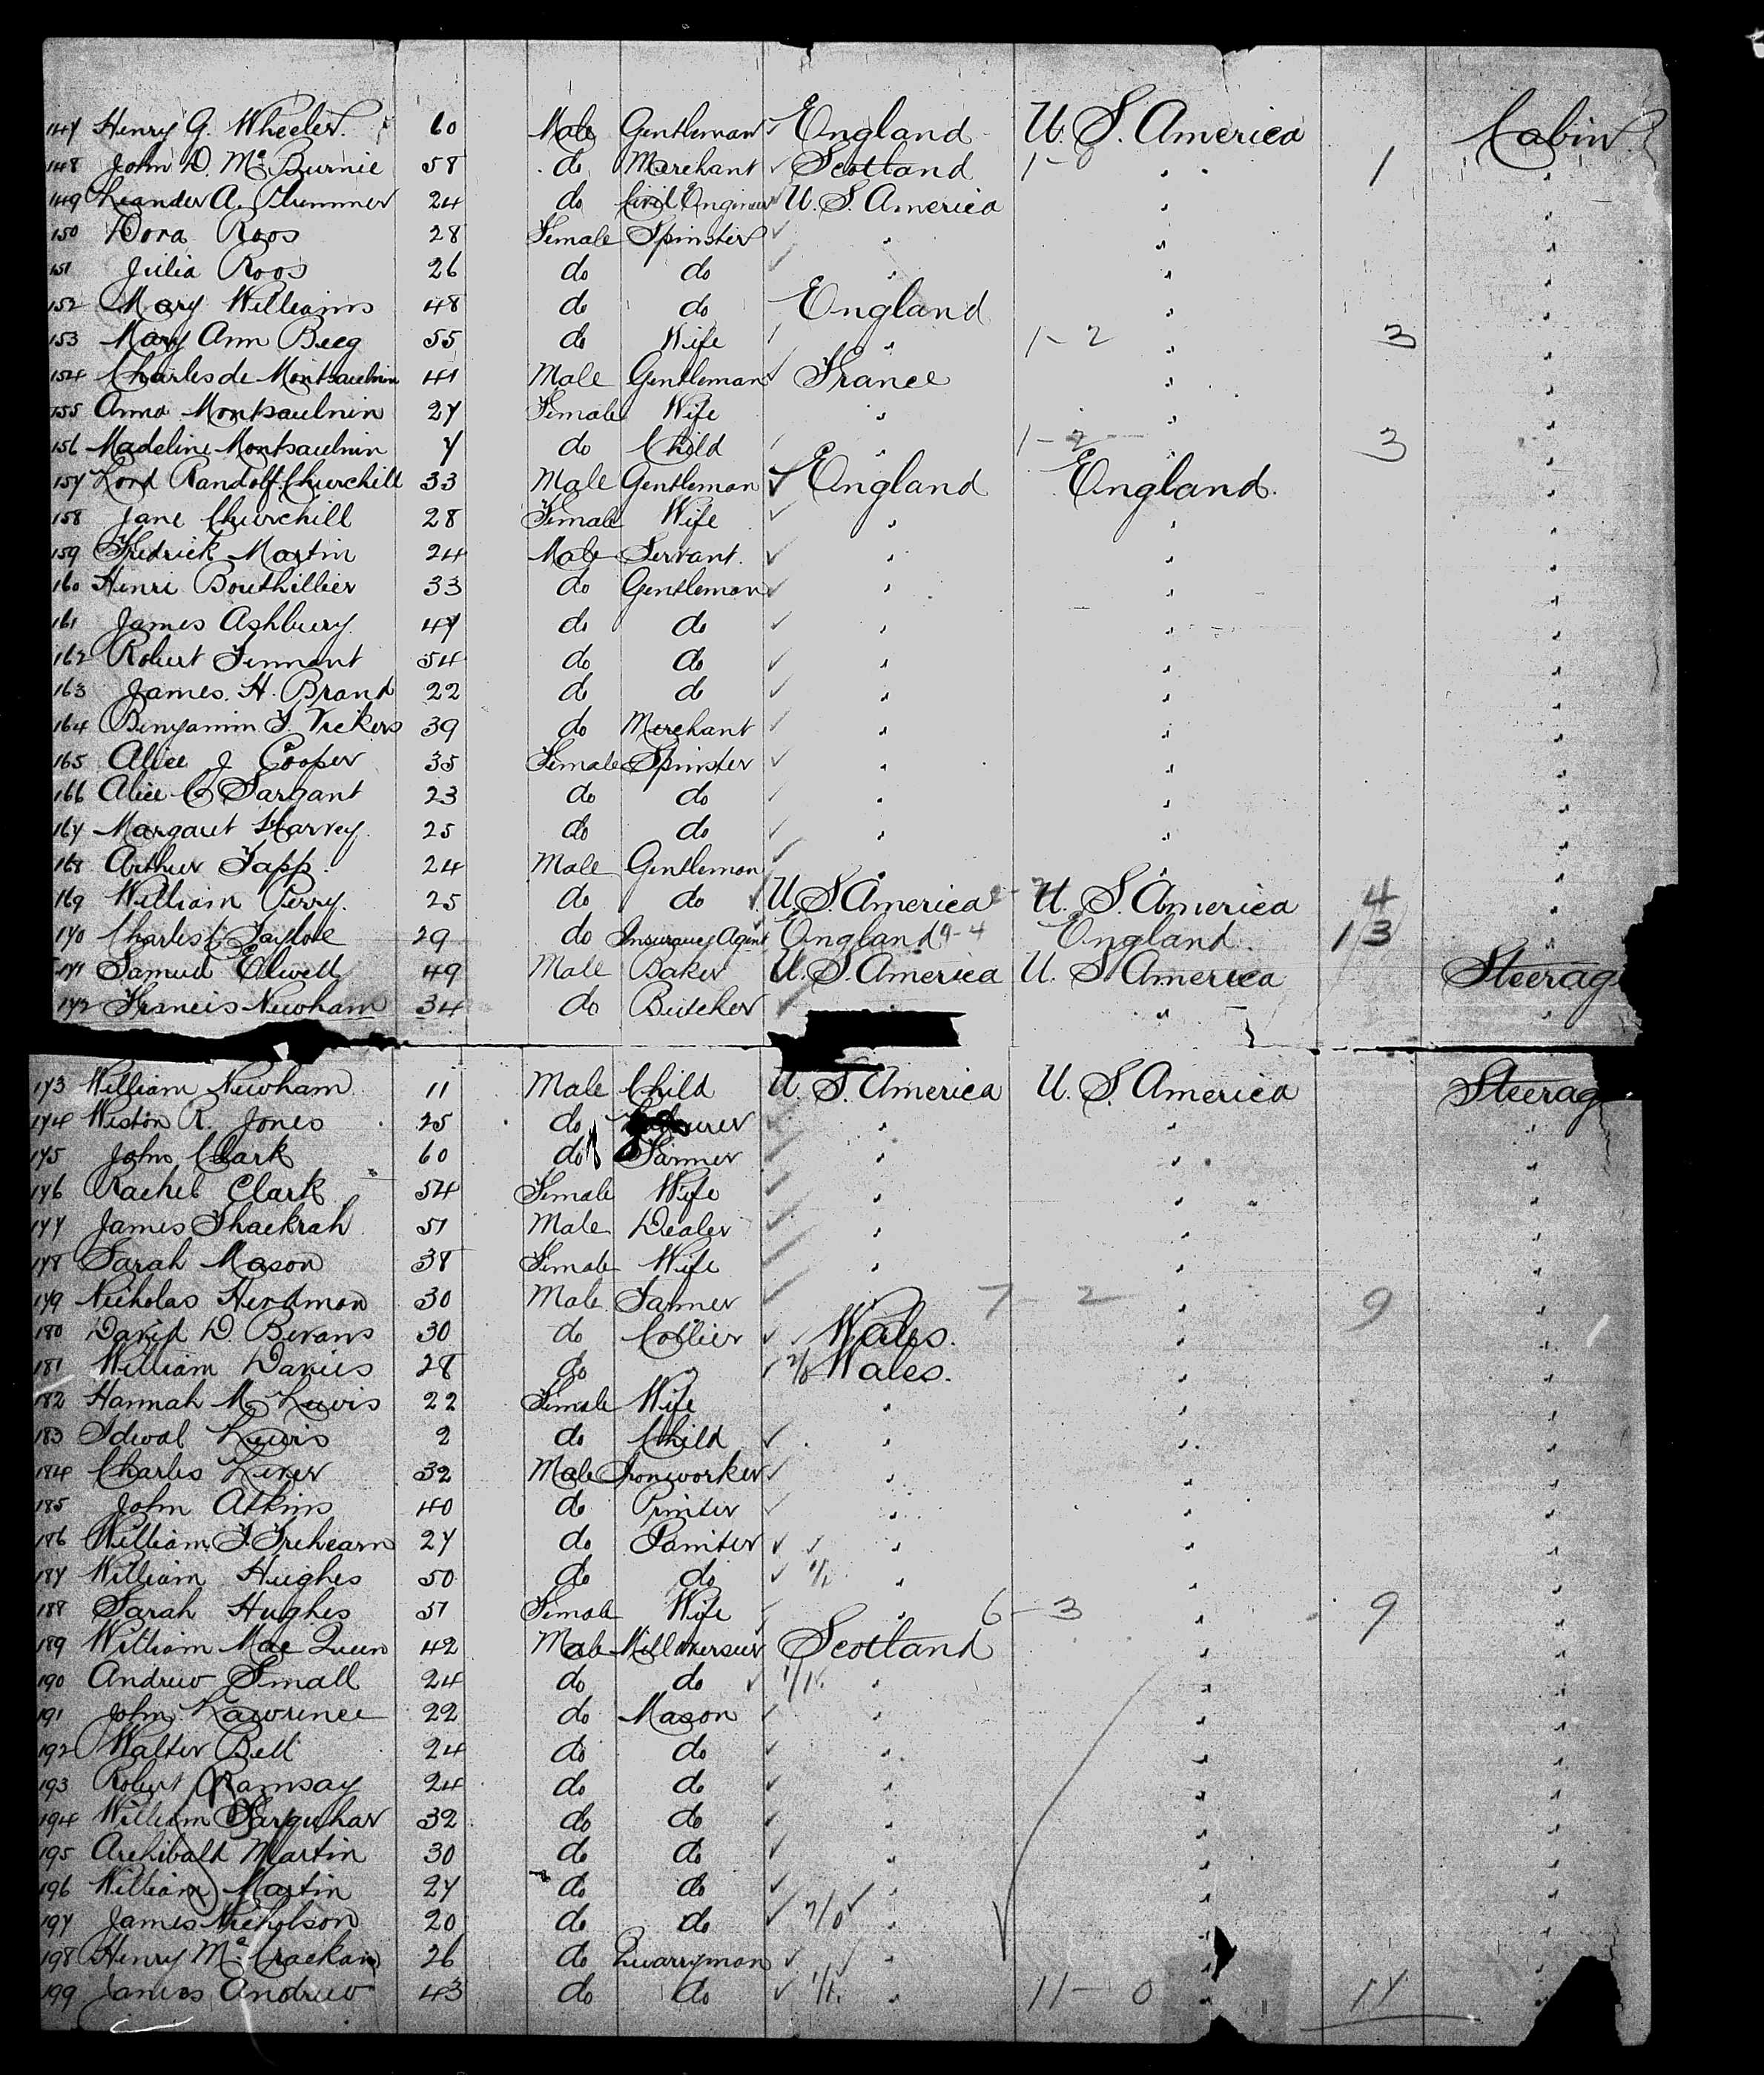 147 Henry G. Wheeler. 60 Male Gentleman England U. S. America Cabin
148 John D. Mc Burnie 58 do Merchant Scotland 1-0 " 1 "
149 Leander A. Plummer 24 do Civil Engineer U. S. America " "
150 Dora Roos 28 Female Spinster " " "
151 Julia Roos 26 do do " " "
152 Mary Williams 48 do do England " "
153 Mary Ann Beeg 55 do Wife " 1-2 " 3 "
154 Charles de Montsaulnin 41 Male Gentleman France " "
155 Anna Montsaulnin 27 Female Wife " " "
156 Madeline Montsaulnin 7 do Child " 1-2 " 3 "
157 Lord Randolf Churchill 33 Male Gentleman England England. "
158 Jane Churchill 28 Female Wife " " "
159 Fredrick Martin 24 Male Servant. " " "
160 Henri Bouthillier 33 do Gentleman " " "
161 James Ashbury. 47 do do " " "
162 Robert Tennant 54 do do " " "
163 James. H. Brand 22 do do " " "
164 Benjamin T. Vickers 39 do Merchant " " "
165 Alice J Cooper 35 Female Spinster " " "
166 Alice C Sargant 23 do do " " "
167 Margaret Harvey. 25 do do " " "
168 Arthur Tapp. 24 Male Gentleman " " "
169 William Perry. 25 do do U. S. America U. S. America 4 "
170 Charles Taylor 29 do Insurance Agent England 9-4 England. 13 "
171 Samuel Elwell 49 Male Baker U. S. America U. S. America Steerag
172 Francis Newham 34 do Butcher " "
173 William Newham 11 Male Child U. S. America U. S. America Steerag
174 Weston R. Jones 25 do " " "
175 John Clark 60 do Farmer " " "
176 Rachel Clark 54 Female Wife " " "
177 James Thackrah 51 Male Dealer " " "
178 Sarah Mason 38 Female Wife " " "
179 Nicholas Herdman 30 Male Farmer " 7-2 " 9 "
180 David D. Bevans 30 do Collier Wales. " "
181 William Davies 28 do " 2/0 Wales. " "
182 Hannah M Lewis 22 Female Wife " " "
183 Idwal Lewis 2 do Child " " "
184 Charles Liver 32 Male Ironworker " " "
185 John Atkins 40 do Printer " " "
186 William T. Trehearn 27 do Painter " " "
187 William Hughes 50 do do " " "
188 Sarah Hughes 51 Female Wife " 6-3 " 9 "
189 William Mac Queen 42 Male Mill Overseer Scotland " "
190 Andrew Small 24 do do 1/1 " " "
191 John Lawrence 22 do Mason " " "
192 Walter Bell 24 do do " " "
193 Robert Ramsay 24 do do " " "
194 William Farquhar 32 do do " " "
195 Archibald Martin 30 do do " " "
196 William Martin 27 do do " " "
197 James Nicholson 20 do do 7/0 " " "
198 Henry Mc Crackan 26 do Quarryman " " "
199 James Andrew 43 do do " 11-0 " 11 "